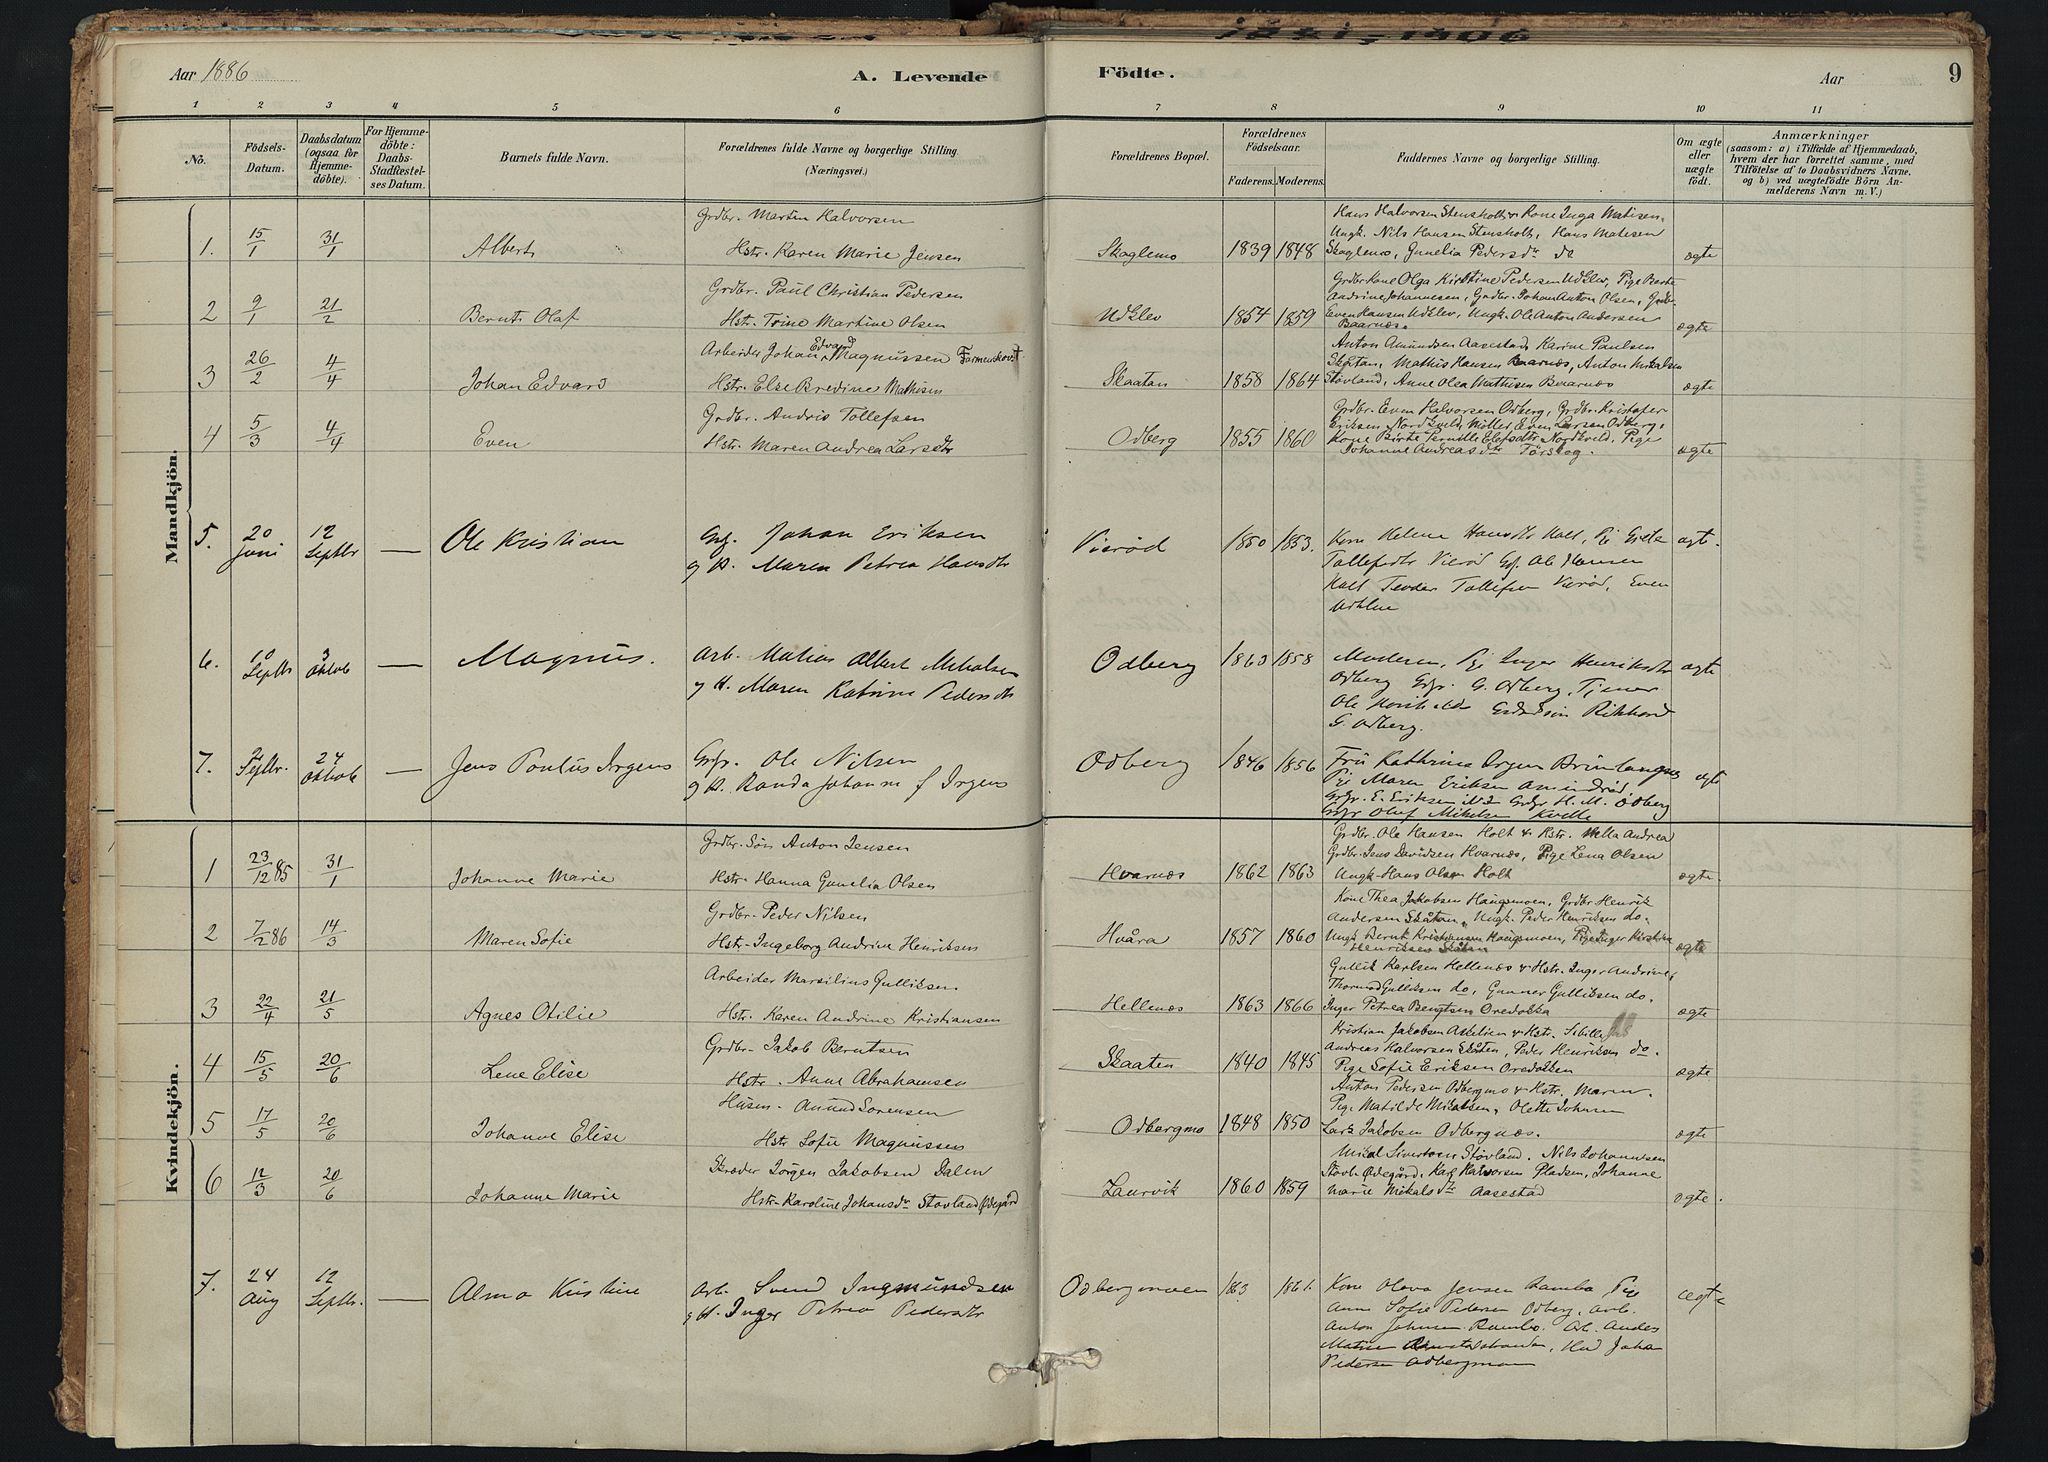 1881-1906
Aar 1886
A. Levende Fødte.
Aar
9
1 2 3 4 5 6 7 8 9 10 11
No.
Födsels-Datum.
Daabsdatum (ogsaa for Hjemme-döbte).
For Hjemme-döbte: Daabs-Stadfæstel-ses Datum.
Barnets fulde Navn.
Forældrenes fulde Navne og borgerlige Stilling. (Næringsvei.)
Forældrenes Bopæl.
Forældrenes Födselsaar.
Faderens. Moderens.
Faddernes Navne og borgerlige Stilling.
Om ægte eller uægte födt.
Anmærkninger
(saasom: a) i Tilfælde af Hjemmedaab,
hvem der har forrettet samme, med
Tilföielse af to Daabsvidners Navne.
og b) ved uægtefödte Börn An-
melderens Navn m. V.)
Mandkjön.
1. 15/1 31/1 Albert
Grdbr. Martin Halvorsen
Hstr. Karen Marie Jensen
Skaglemo 1839 1848
Hans Halvorsen Stensholt & Kone Inga Matisen.
Ungk. Nils Hansen Stensholt, Hans Matisen
Skaglemo, Gunelia Pedersdr do
ægte
2 9/1 21/2 Bernt Olaf
Grdbr. Paul Christian Pedersen
Hstr. Trine Martine Olsen
Udklev 1854 1859
Grdbr Kone Olga Kirstine Pedersen Udklev, Pige Berte
Andrine Johannesen, Grdbr. Johan Anton Olsen, Grdbr
Even Hansen Udklev, Ungk. Ole Anton Andersen
Baarnæs.
ægte
3 26/2 4/4 Johan Edvard
Arbeider Johan Edvard Magnussen
Hstr. Else Bredine Mathisen
Skaatan 1858 1864
Anton Amundsen Aasestad, Karine Paulsen
Skåtan, Mathis Hansen Baarnæs, Anton
Stovland, Anne Olea Mathisen Baarnæs
ægte
4 5/3 4/4 Even
Grdbr. Andris Tollefsen
Hstr. Maren Andrea Larsdtr
Odberg 1855 1860
Grdbr. Even Halvorsen Odberg, Grdbr. Kristofer
Eriksen Nordkveld, Møller Even Larsen Odberg,
Kone Birte Pernille Nordkveld, Pige
Johanne Andreasdtr
ægte
5. 20 Juni 12 Septbr — Ole Kristian
Johan Eriksen
og H. Maren Petrea Hansdtr
Vierød 1850 1853.
Kone Helene Hansdtr Holt,
Tollefsdtr Vierød Ole Hansen
Holt Teodor Tollefsen Vierød, Even
ægt.
6. 10 Septbr 3 Oktob — Magnus.
Arb. Matias Albert
og H. Maren Katrine Pedersdtr
Odberg 1860 1858
Moderen, Pige Inger Henriksdtr
Odberg G. Odberg, Tjener
Ole
G. Odberg.
ægte
7. Septbr. 24 Oktob — Jens Pontus Irgens
Ole Nilsen
og H. Randa Johanne f Irgens
Odberg 1846 1856
Fru Kathrina Irgens
Pige Maren Eriksen Amundrød
E. Eriksen H. M. Odberg
Olaf Mikelsen
ægte
Kvindekjön.
1 23/12 85 31/1 Johanne Marie
Grdbr. Søn Anton Jensen
Hstr. Hanna Gunelia Olsen
Hvarnæs 1862 1863
Grdbr. Ole Hansen Holt & Hstr. Andrea
Grdbr. Jens Davidsen Hvarnæs, Pige Lena Olsen
Ungk. Hans Olsen Holt
ægte.
2 7/2 86 14/3 Maren Sofie
Grdbr. Peder Nilsen
Hstr. Ingeborg Andrine Henriksen
Hvåra 1857 1860
Kone Thea Jakobsen Haugsmoen, Grdbr Henrik
Andersen Skåtan, Ungk. Peder Henriksen do.
Ungk Bernt Kristiansen Haugsmoen, Pige Inger Kirstine
Henriksen Skåtan
ægte
3 22/4 21/5 Agnes Otilie
Arbeider Marsilius Gulliksen
Hstr. Karen Andrine Kristiansen
Hellenæs 1863 1866
Gullik Karlsen Hellenæs & Hstr. Inger Andrine,
Thorvald Gulliksen do, Gunner Gulliksen do.
Inger Petrea Bengtsen Oredokka
ægte
4 15/5 20/6 Lene Elise
Grdbr. Jakob Berntsen
Hstr. Anne Abrahamsen
Skaaten 1840 1845
Kristian Jakobsen & Hstr. Sibille
Andreas Halvorsen Skåten, Peder Henriksen do.
Pige Sofie Eriksen Oredokken
ægte
5 17/5 20/6 Johanne Elise
Husm. Amund Sorensen
Hstr Sofie Magnussen
Odbergmo 1848 1850
Anton Pedersen Odbergmo & Hstr. Maren.
Pige Matilde Mikalsen, Olette Johnsen
Lars Jakobsen Odbergnæs.
ægte
6 12/3 20/6 Johanne Marie
Skræder Jørgen Jakobsen Dalen
Hstr. Karoline Johansdtr Stovland Ødegård
Laurvik 1860 1859
Mikal Sivertsen Stovland. Nils Johannesen
Stovl. Ødegård, Karl Halvorsen Pladsen, Johanne
Marie Mikalsdtr Aasestad
ægte.
7. 24 Aug 12 Septbr. — Alma Kristine
Arb. Svend Ingmundsen
og H. Inger Petrea Pedersdtr
Odbergmoen 1863 1861.
Kone Olava Jensen Ramba Pige
Anne Sofie Pedersen Odberg, Arb.
Anton Johnsen Ramba. Arb. Anders
Johan
Pedersen Odbergmoen
ægte